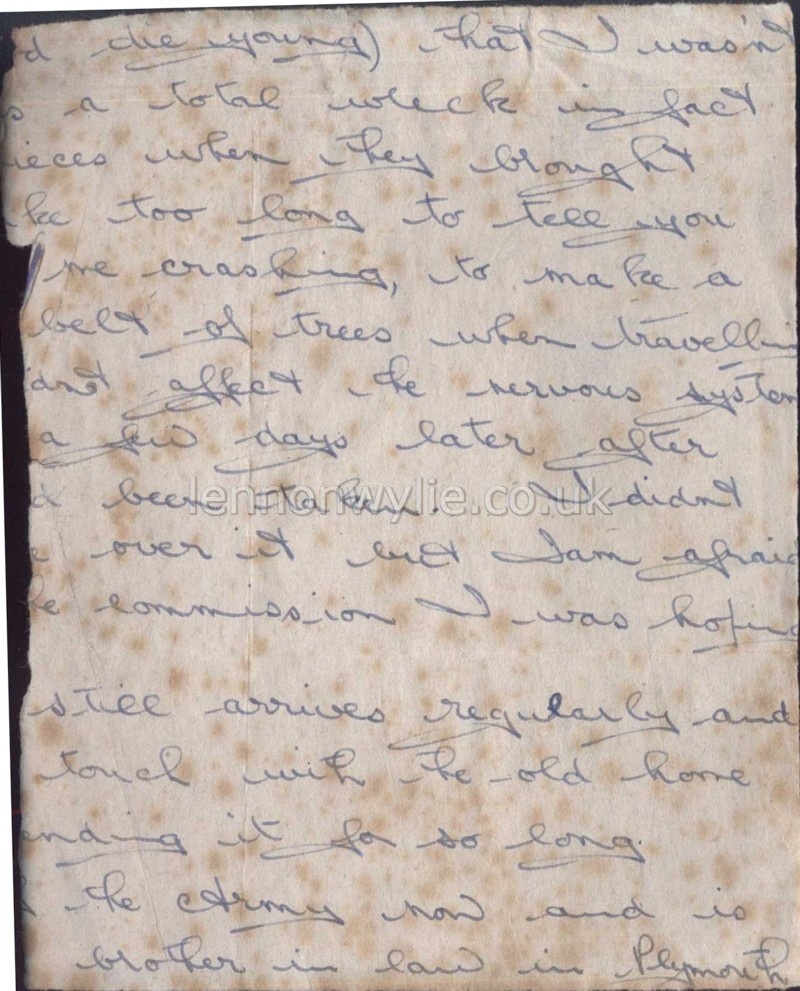 d die young) that I wasn't
s a total wreck in fact
ieces when they brought
ke too long to tell you
me crashing, to make a
belt of trees when travellin
dnt affect the nervous system
a few days later after
d been taken. I didnt
e over it but I am afraid
he commission I was hoping
still arrives regularly and
touch with the old home
ending it for so long.
f the Army now and is
brother in law in Plymouth
lennonwylie.co.uk